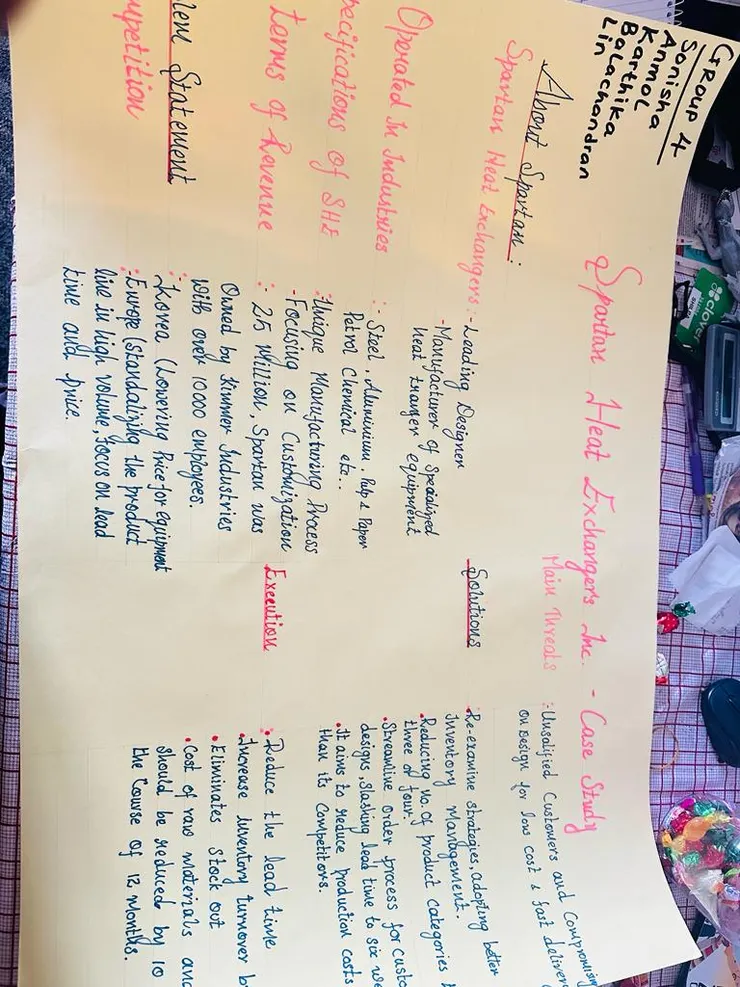 GROUP 4
Sonisha
Anmol
Karthika
Balachandran
Lin
Spartan Heat Exchangers Inc. - Case Study
About Spartan:
Spartan Heat Exchangers :- Leading Designer
- Manufacturer of Specialized
heat transfer equipment
Operated In Industries :- Steel, Aluminium, Pulp & Paper
Petrol Chemical etc..
pecifications of SHE : Unique Manufacturing Process
- Focusing on Customization
terms of Revenue : 25 Million, Spartan was
Owned by Krimmer Industries
with over 10000 employees.
lem Statement
mpetition : Korea (Lowering Price for equipment
:- Europe (standalizing the product
line in high volume, focus on lead
time and price.
Main Threats : Unsatified Customers and Compromising
on Design for low cost & fast deliver
Solutions
: Re-examine strategies, adopting better
Inventory Management.
• Reducing no. of product categories
three or four.
• Streamline order process for custo
designs, slashing lead time to six we
• It aims to reduce production costs
than its competitors.
Execution
: Reduce the lead time
• Increase inventory turnover b
• Eliminates stock out
• Cost of raw materials an
should be reduced by 10
the course of 12 months.
clover